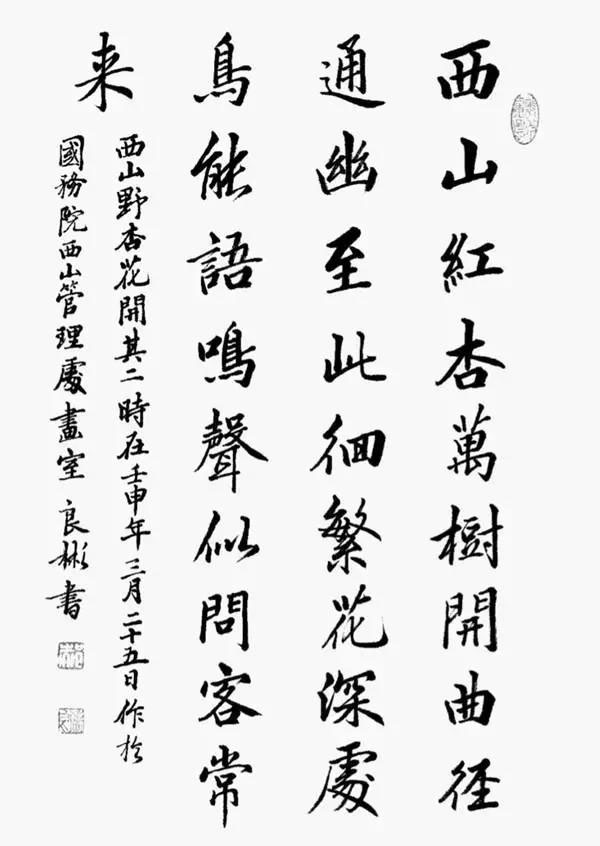 西山紅杏萬樹開曲徑
通幽至此徊繁花深處
鳥能語鳴聲似問客常
来
西山野杏花開其二時在壬申年三月二十五日作於
國務院西山管理處畫室良彬書